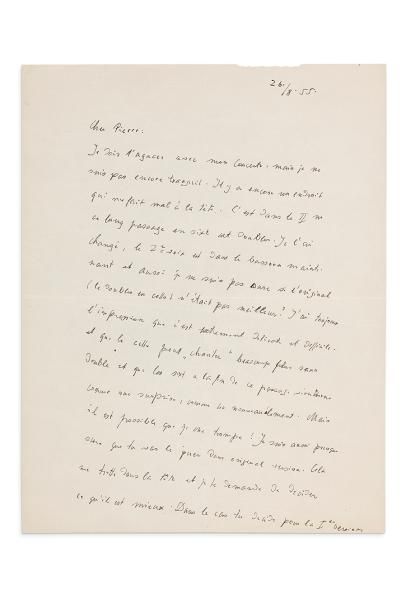 26/8.55.
Cher Pierre:
Je dois t'agacer avec mon Concerto. mais je ne
suis pas encore tranquil. Il y a encore un endroit
qui me fait mal à la tête. C'est dans le II me
ce long passage en sixt et doubles. Je l'ai
changé, le 2e voix est dans le basson mainte-
nant et aussi je ne suis pas sure si l'original
(le doubles en cello) n'était pas meilleur! J'ai toujour
l'impression que c'est tellement delicate et difficile.
et que le cello peut "chanter" beaucoup plus sans
double et que les sixt a la fin de ce passage viendront
comme une surprise, comme un nouveau element. Mais
il est possible que je me trompe! Je suis aussi presque
sure que tu vas le jouer dans original version. Cela
me trotte dans la tête et je te demande de decider
ce qu'il est mieux. Dans le cas tu decide pour la I ère version